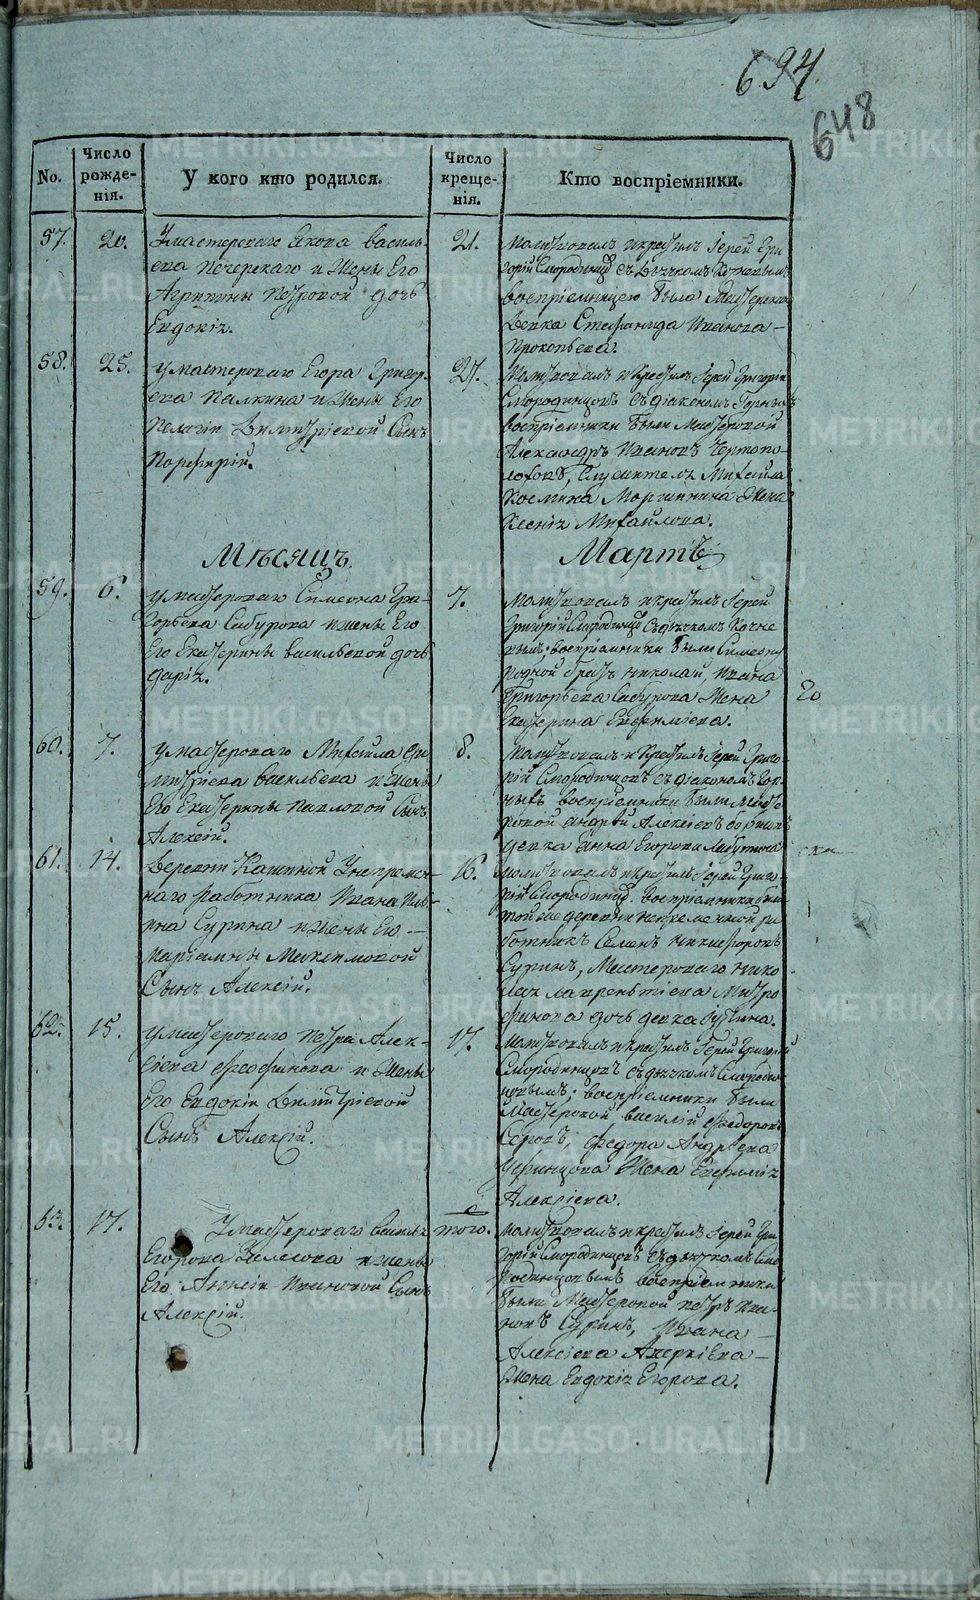 694.
648
No.
Число рожденія.
У кого кто родился.
Число крещенія.
Кто воспріемники.
57.
20.
Умастероваго Якова Василь-
ева Печерскаго и жены Его
Агрипины Петровой дочь
Евдокія.
21.
Молитвовалъ икрестилъ Іерей Гри
горій Смородинцовъ съ дьячкомъ Кочневымъ
воспріемницею была Мастерская
Девка Стефанида Иванова
Прокопьева.
58.
25.
умастероваго Егора Григорь-
ева Палкина и жены Его
Пелагіи Димитріевой Сынъ
Порфирій.
27.
Молитвовалъ икрестилъ Іерей Григорій
Смородинцовъ съ діакономъ Горныхъ
воспріемники были Мастеровой
Александръ Ивановъ Чертопо-
лоховъ, Служителя Михайла
Космина жена
Ксенія Михайлова.
Мѣсяцъ.
Мартъ
59.
6.
умастероваго Симеона Гри-
горьева Сабурова ижены Его
Его Екатерины Васильевой дочь
Дарія.
7.
Молитвовалъ икрестилъ Іерей
Григорій Смородинцовъ Съдьячкомъ Кочне
вымъ, воспріемники были Симеону
родной братъ Николай, Ивана
Григорьева Сабурова жена
Екатерина Евфиміева.
60.
7.
умастероваго Михайла Ди
митріева Васильева и жены
Его Екатерины Павловой Сынъ
Алексій.
8.
Молитвовалъ и крестилъ Іерей Григо-
рій Смородинцовъ съ діакономъ Гор
ныхъ воспріемники были Масте
ровой Андрей Алексіевъ
девка Анна Егорова
61.
14.
Деревни Кашиной Унепремен-
наго работника Ивана
Сурина ижены Его
Маріамны Максимовой
Сынъ Алексій.
16.
Молитвовалъ икрестилъ Іерей Григо-
рій Смородинцовъ. Воспріемники были
той же деревни непременной ра
ботникъ Семенъ Никифоровъ
Суринъ, Мастероваго Нико
лая Лаврентіева Митро
фанова дочь девка
62.
15.
умастероваго Петра Алек-
сіева Феофанова и жены
Его Евдокіи Димитріевой
Сынъ Алексій.
17.
Молитвовалъ икрестилъ Іерей Григорій
Смородинцовъ Съдьячкомъ Смородин
цовымъ; воспріемники были
Мастеровой Василій Федоровъ
Серовъ, Федора Андреева
Уфинцова жена Евфимія
Алексіева.
63.
17.
Умастероваго Василья
Егорова и жены
Его Ивановой Сынъ
Алексій.
того.
Молитвовалъ икрестилъ Іерей Гри
горій Смородинцовъ Съдьячкомъ Смо
родинцовымъ воспріемники
были Мастеровой Петръ Ива-
новъ Суринъ, Ивана
Алексіева Аверкіева
жена Евдокія Егорова.